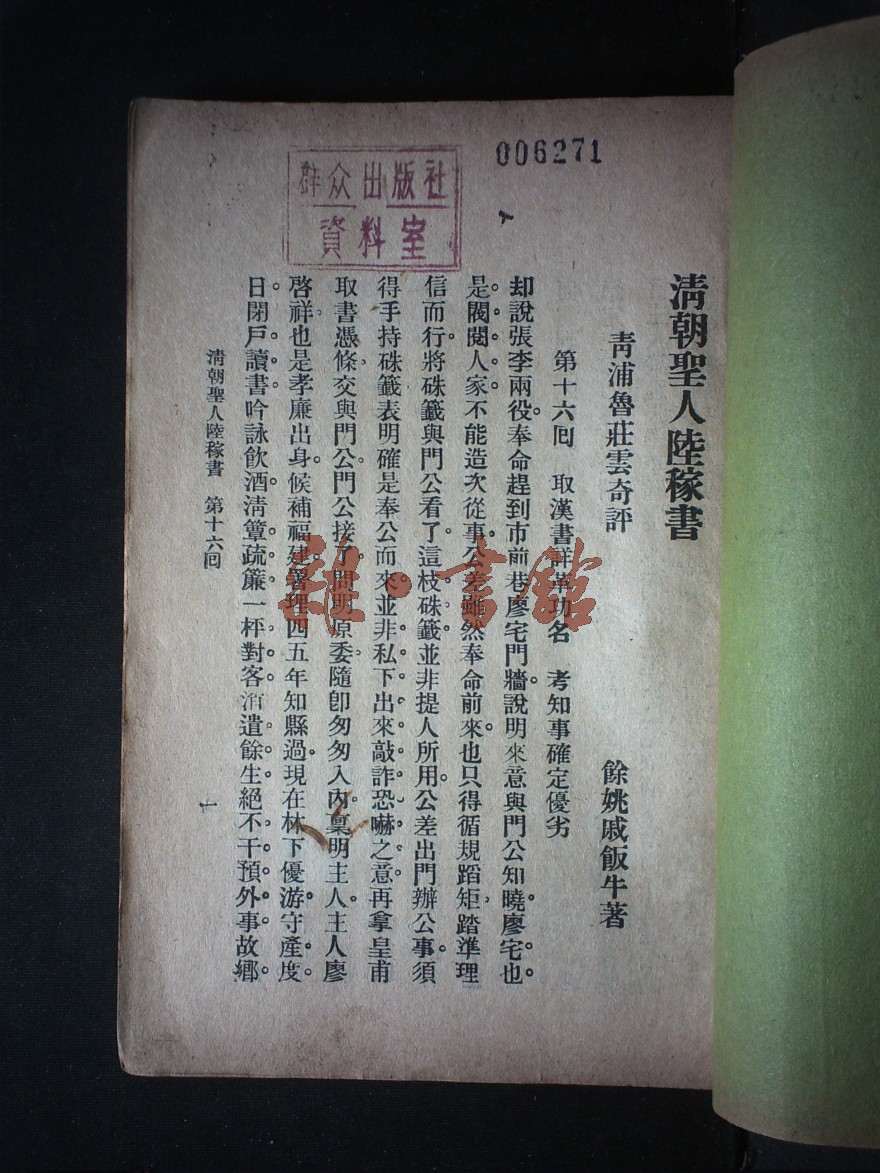 006271
群众出版社
資料室
清朝聖人陸稼書
青浦魯莊雲奇評
餘姚戚飯牛著
第十六回　取漢書詳革功名　考知事確定優劣
却說張李兩役。奉命趕到市前巷廖宅門牆。說明來意。與門公知曉。廖宅也
是閥閱人家。不能造次從事。公差雖然奉命前來。也只得循規蹈矩。踏準理
信而行。將硃籤與門公看了。這枝硃籤。並非提人所用。公差出門辦公事。須
得手持硃籤。表明確是奉公而來。並非私下出來敲詐恐嚇之意。再拿皇甫
取書憑條。交與門公。門公接了。問明原委。隨卽匆匆入內。稟明主人。主人廖
啓祥。也是孝廉出身。候補福建。署理四五年知縣過。現在林下優游。守產度
日。閉戶讀書。吟詠飲酒。清簟疏簾。一枰對客。消遣餘生。絕不干預外事。故鄉
清朝聖人陸稼書　第十六回
一
雜·書館